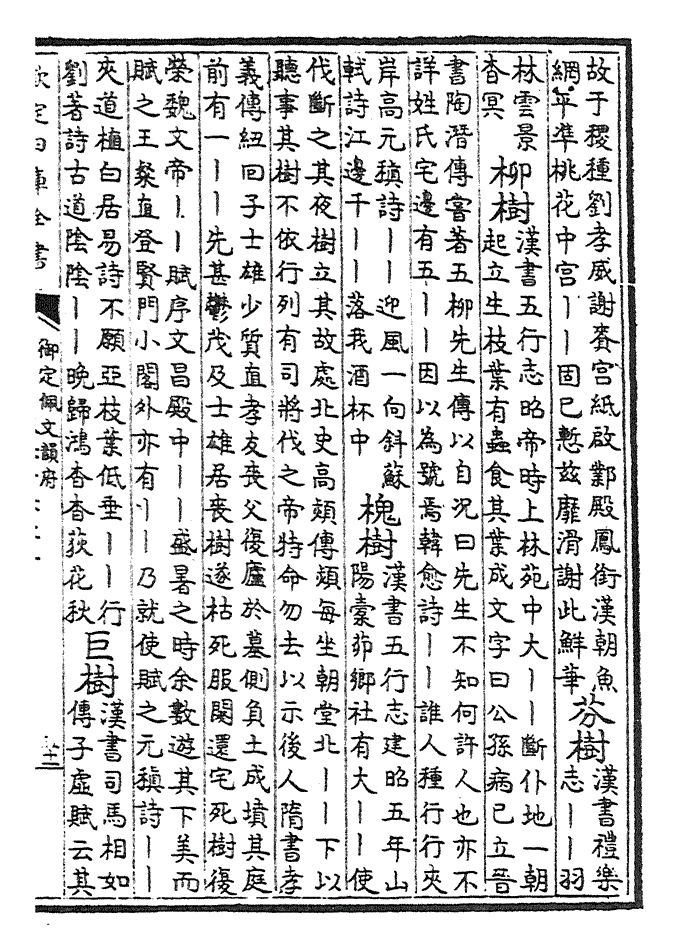 故于稷種劉孝威謝賚宮紙啟鄴殿鳳銜漢朝魚
網平準桃花中宮丨丨固已慙兹靡滑謝此鮮華
芬樹
漢書禮樂
志丨丨羽
林雲景
杳冥
柳樹
漢書五行志昭帝時上林苑中大丨丨斷仆地一朝
起立生枝葉有蟲食其葉成文字曰公孫病已立晉
書陶潛傳嘗著五柳先生傳以自况曰先生不知何許人也亦不
詳姓氏宅邊有五丨丨因以為號焉韓愈詩丨丨誰人種行行夾
岸高元稹詩丨丨迎風一向斜蘇
軾詩江邊千丨丨落我酒杯中
槐樹
漢書五行志建昭五年山
陽橐茆鄉社有大丨丨使
伐斷之其夜樹立其故處北史高熲傳熲每坐朝堂北丨丨下以
聽事其樹不依行列有司將伐之帝特命勿去以示後人隋書孝
義傳紐回子士雄少質直孝友喪父復廬於墓側負土成墳其庭
前有一丨丨先甚鬱茂及士雄居喪樹遂枯死服闋還宅死樹復
榮魏文帝丨丨賦序文昌殿中丨丨盛暑之時余數遊其下美而
賦之王粲直登賢門小閣外亦有丨丨乃就使賦之元稹詩丨丨
夾道植白居易詩不願亞枝葉低垂丨丨行
劉著詩古道陰陰丨丨晚歸鴻杳杳荻花秋
巨樹
漢書司馬相如
傳子虛賦云其
欽定四庫全書
御定佩文韻府